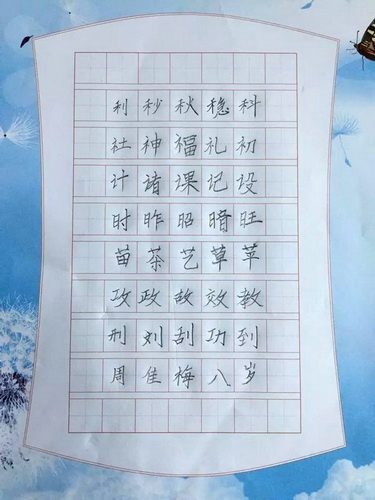 利秒秋稳科
社神福礼初
计诸课记设
时昨昭暗旺
苗茶艺草苹
攻政故效教
刑刘刮功到
周佳梅八岁